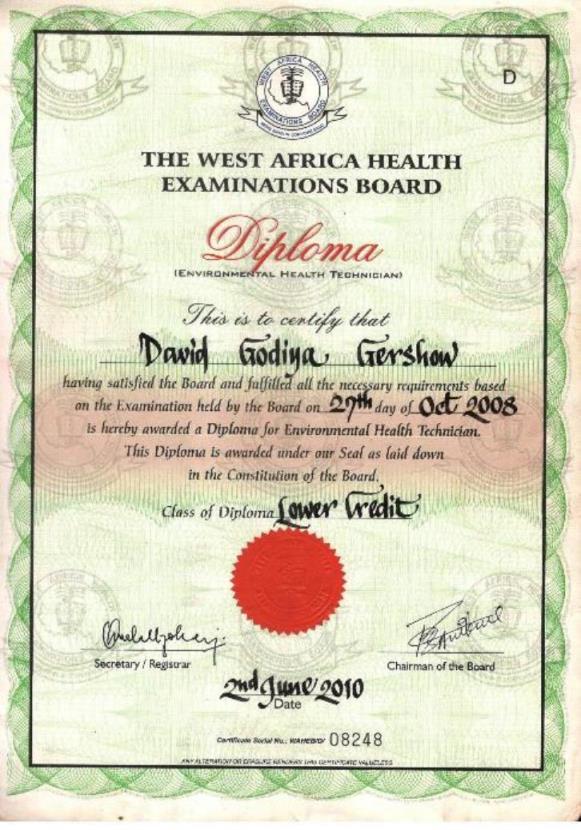 D
WEST AFRICA HEALTH
EXAMINATIONS BOARD
THE WEST AFRICA HEALTH
EXAMINATIONS BOARD
Diploma
(ENVIRONMENTAL HEALTH TECHNICIAN)
This is to certify that
David Godiya Gershow
having satisfied the Board and fulfilled all the necessary requirements based
on the Examination held by the Board on 27th day of Oct 2008
is hereby awarded a Diploma for Environmental Health Technician.
This Diploma is awarded under our Seal as laid down
in the Constitution of the Board.
Class of Diploma Lower Credit
Secretary / Registrar
Chairman of the Board
2nd June 2010
Date
Certificate Serial No.: WAHEB/D/ 08248
ANY ALTERATION OR ERASURE RENDERS THIS CERTIFICATE VALUELESS